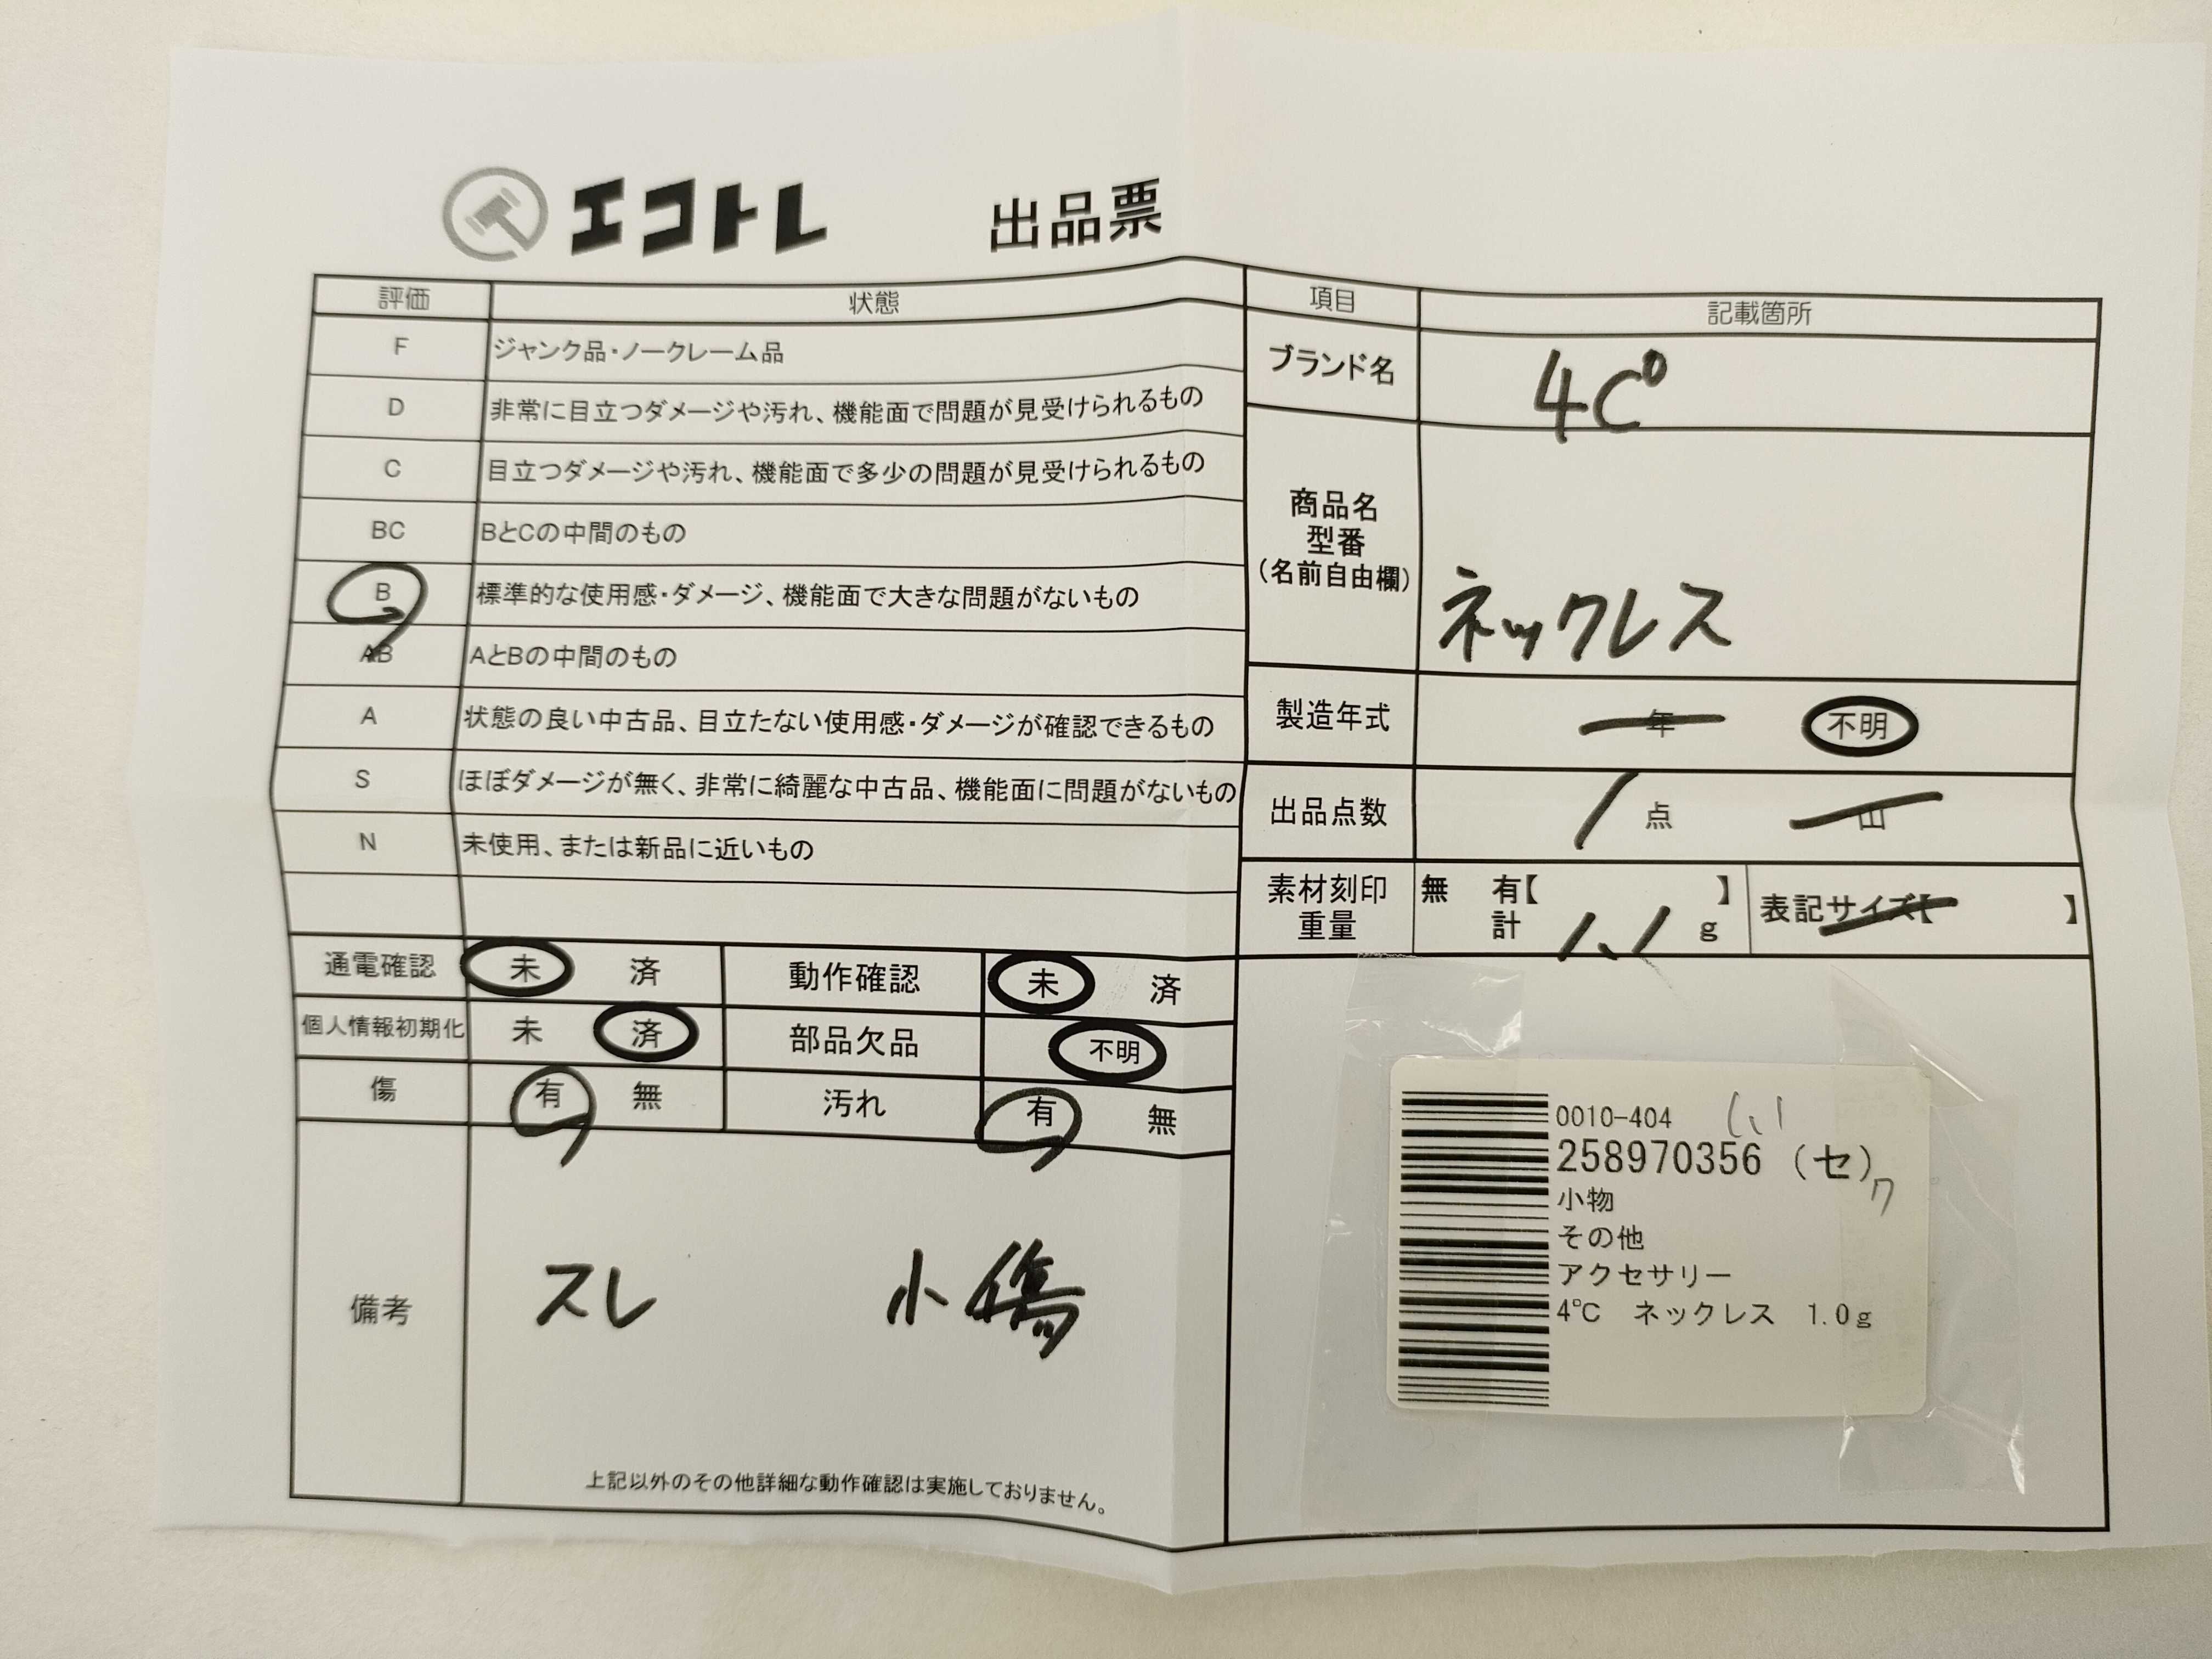 エコトレ 出品票
評価 状態
F ジャンク品・ノークレーム品
D 非常に目立つダメージや汚れ、機能面で問題が見受けられるもの
C 目立つダメージや汚れ、機能面で多少の問題が見受けられるもの
BC BとCの中間のもの
B 標準的な使用感・ダメージ、機能面で大きな問題がないもの
AB AとBの中間のもの
A 状態の良い中古品、目立たない使用感・ダメージが確認できるもの
S ほぼダメージが無く、非常に綺麗な中古品、機能面に問題がないもの
N 未使用、または新品に近いもの
通電確認 未 済 動作確認 未 済
個人情報初期化 未 済 部品欠品 不明
傷 有 無 汚れ 有 無
備考 スレ 小傷
上記以外のその他詳細な動作確認は実施しておりません。
項目 記載箇所
ブランド名 4C°
商品名
型番
(名前自由欄)
ネックレス
製造年式 年 不明
出品点数 1 点 山
素材刻印 無 有【 】
重量 計 1.1 g
表記サイズ【 】
0010-404 1.1
258970356 (セ)ク
小物
その他
アクセサリー
4℃ ネックレス 1.0g